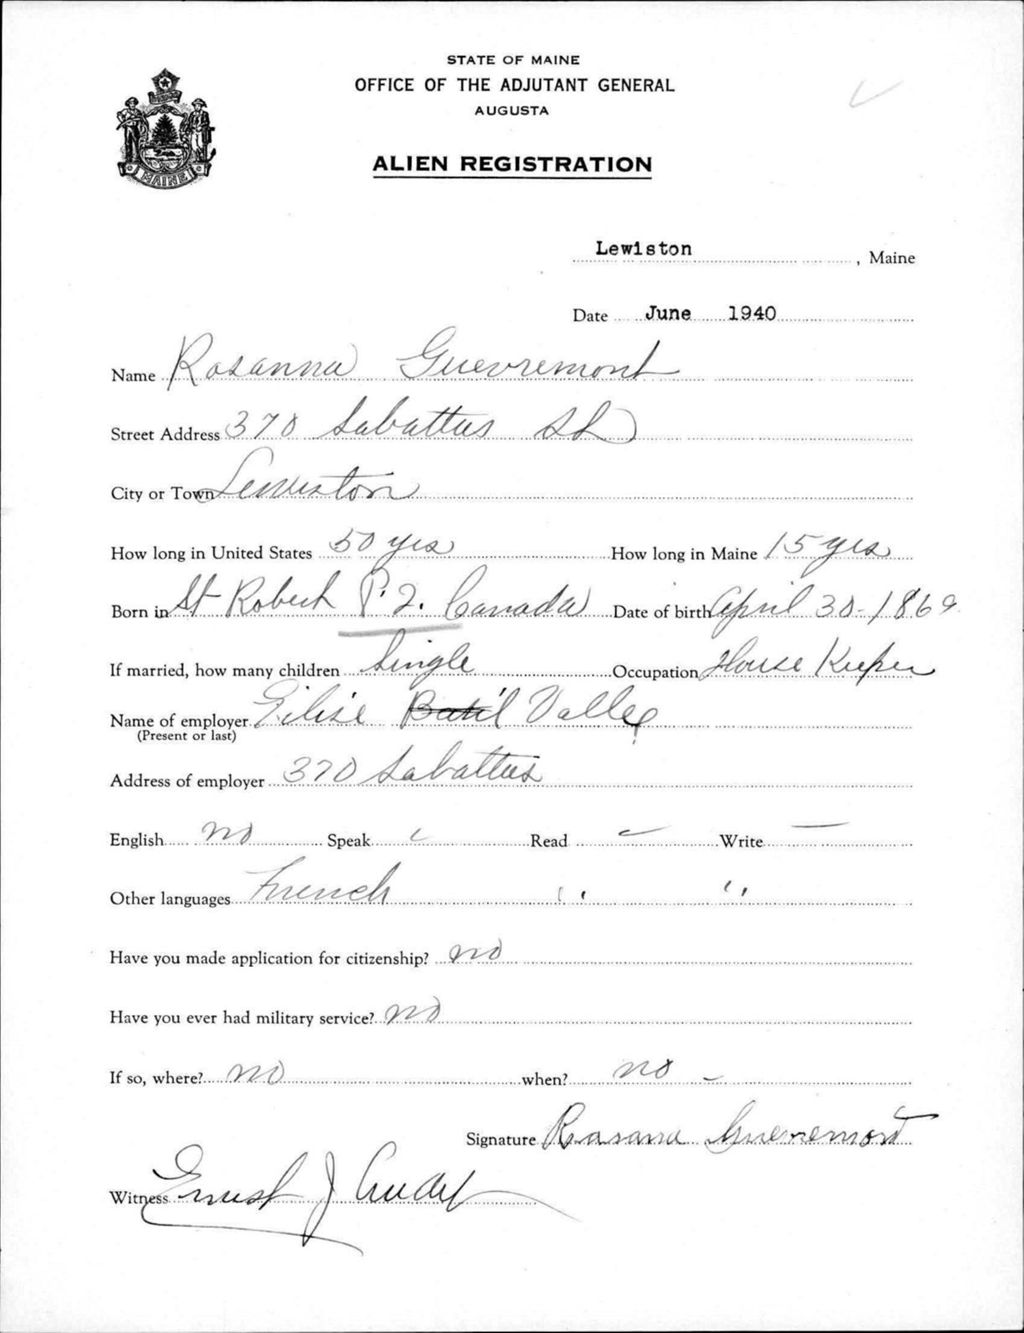 STATE OF MAINE
OFFICE OF THE ADJUTANT GENERAL
AUGUSTA
ALIEN REGISTRATION
MAINE
Lewiston, Maine
Date June 1940
Name Rosanna Guevremont
Street Address 370 Sabattus St
City or Town Lewiston
How long in United States 50 yrs How long in Maine 15 yrs
Born in St Robert P.Q. Canada Date of birth April 30-1869
If married, how many children Single Occupation House Keeper
Name of employer Vallee
(Present or last)
Address of employer 370 Sabattus
English no Speak Read Write
Other languages French " "
Have you made application for citizenship? no
Have you ever had military service? no
If so, where? no when? no -
Signature Rosanna Guevremont
Witness Ernest J